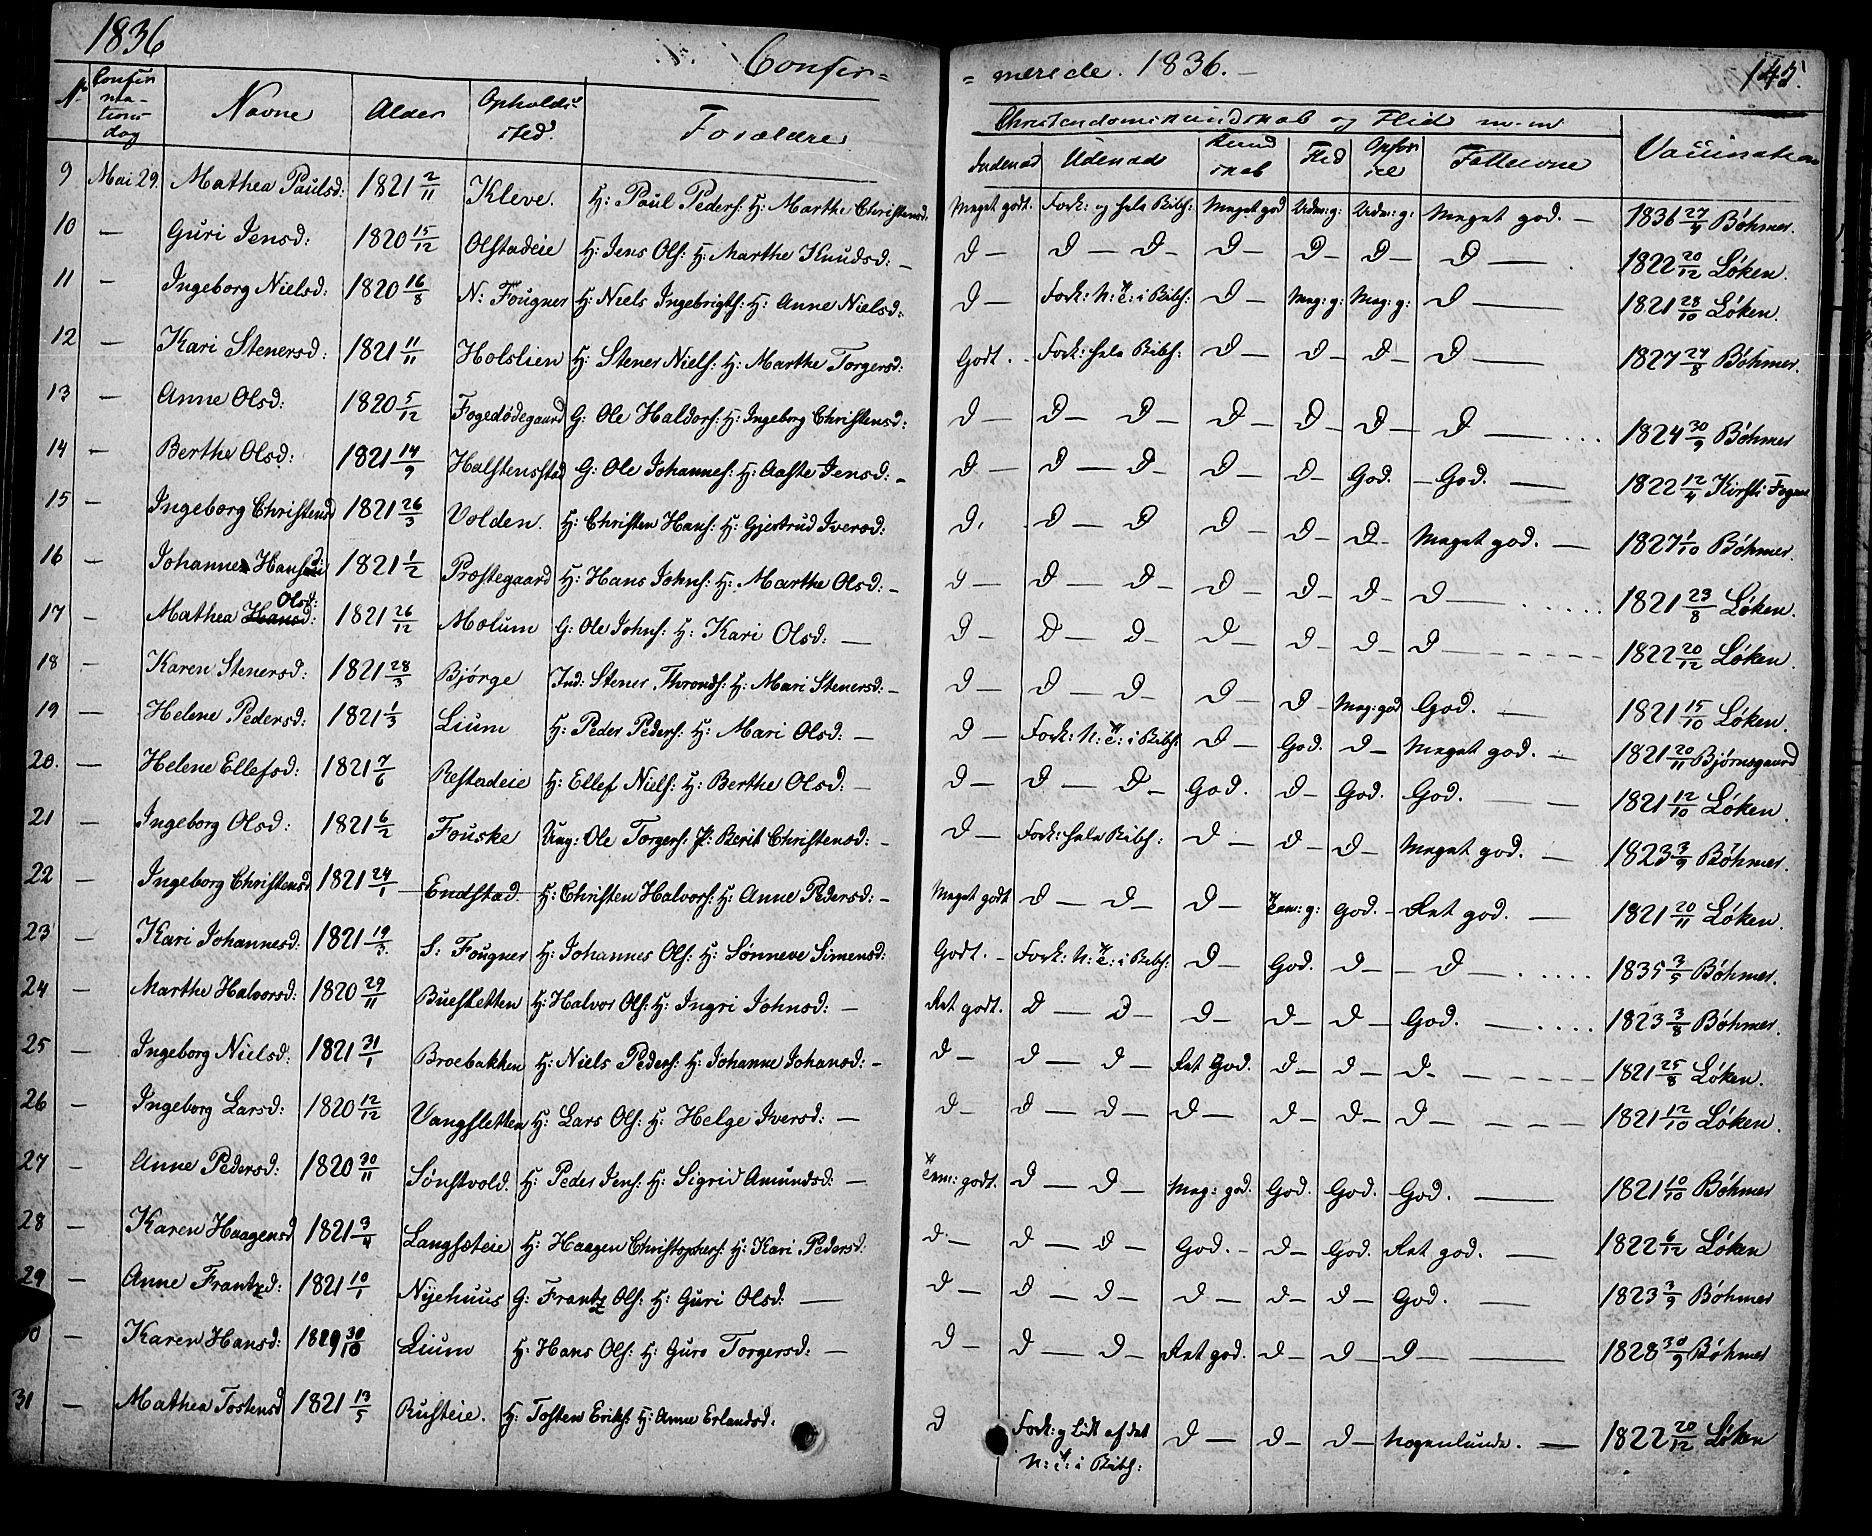 1836
Confir=
= merede. 1836. –
145.
N. Confirmationsdag Navne Alder Opholdssted. Forældre
Christendomskundskab og Flid m. m
Indenad Udenad Kundskab Flid Opførsel Fatteevne Vaccination
9 Mai 29. Mathea Paulsd: 1821 2/11 Kleve. H: Paul Peders: H: Marthe Christensd. Meget godt. Fork: og hele Bibh: Meget god Udm: g: Udm: g: Meget god. — 1836 27/4 Böhmer.
10 — Guri Jensd: 1820 15/12 Olstadeie H: Jens Ols: H: Marthe Knudsd: – D — D — D – D — D – D – D — 1822 20/12 Löken.
11 — Ingeborg Nielsd: 1820 16/8 N: Fougner H: Niels Ingebrigts: H: Anne Nielsd: D — Fork: N: T: i Bibh: D — Meg: g: Meg: g: D — 1821 28/10 Löken.
12 — Kari Stenersd: 1821 11/11 Holslien H: Stener Niels: H: Marthe Torgersd: Godt. – Fork: hele Bibh: D — D – D – D — 1827 27/8 Böhmer.
13 — Anne Olsd: 1820 5/12 Fogedødegaard G: Ole Haldors: H: Ingeborg Christensd: D — D — D D — D – D D — 1824 30/9 Böhmer
14 — Berthe Olsd: 1821 14/9 Halstensstad G: Ole Johannes: H: Aaste Jensd: – D — D — D – D — D – God. – God. — 1822 12/4 Kirsti
15 — Ingeborg Christensd 1821 26/3 Volden. H: Christen Hans: H: Gjertrud Iversd: D. D — D D — D – D – Meget god. — 1827 1/10 Böhmer.
16 — Johanne Hansd 1821 1/2 Præstegaard H: Hans Johns: H: Marthe Olsd: – D — D — D – D – D – D – D — 1821 23/8 Löken.
17 – Mathea Hansd: Olsd: 1821 26/12 Molum G: Ole Johns: H: Kari Olsd: — D – D — D – D D D – D — 1822 20/12 Löken.
18 — Karen Stenersd: 1821 28/3 Bjørge Ind: Stener Thronds: H: Mari Stenersd: – D — D — D – D — D – Meg: god God. — 1821 15/10 Löken.
19 — Helene Pedersd: 1821 1/3 Lium H: Peder Peders: H: Mari Olsd: — D — Fork: N: T: i Bibh: D — God. D – Meget god. — 1821 20/11 Bjørnsgaard
20. — Helene Ellefsd: 1821 7/6 Restadeie H: Ellef Niels: H: Berthe Olsd: — D – D — D – God. D – God. God. — 1821 12/10 Löken.
21 — Ingeborg Olsd: 1821 6/2 Fouske Ung: Ole Torgers: P: Berit Christensd: – D — Fork: hele Bibh: D — D – D – Meget god. — 1823 3/9 Böhmer.
22 — Ingeborg Christensd 1821 24/1 Endstad. H: Christen Halvors: H: Anne Pedersd: – Meget godt D — D – D — Tem: g: God. – Ret god. — 1821 20/11 Löken.
23 — Kari Johannesd: 1821 19/3. S: Fougner H: Johannes Ols: H: Sønneve Simensd: Godt. – Fork: N: T: i Bibh: D — God. D – – D — 1835 3/5 Böhmer.
24 — Marthe Halvorsd: 1820 29/11 Buesletten H: Halvor Ols: H: Ingri Johnsd: — Ret godt. D — D – D – D – D – God. — 1823 3/8 Böhmer.
25 — Ingeborg Nielsd: 1821 31/1 Broebakken H: Niels Peders: H: Johanne Johansd: – D – D — D – Ret God. D – D – D – 1821 25/8 Löken.
26 — Ingeborg Larsd: 1820 12/12 Vangsletten H: Lars Ols: H: Helge Iversd: — D – D — D – D — D – D – D — 1821 12/10 Löken.
27 – Anne Pedersd: 1820 30/11 Sønstvold. H: Peder Jens: H: Sigrid Amundsd: — Tem: godt. D — D – Meg: god. God. God. God. — 1821 10/10 Böhmer
28 — Karen Haagensd 1821 3/4 Langsæteie H: Haagen Christophers: H: Kari Pedersd: D – D — D – God. – D – God. Ret god. — 1822 6/12 Löken
29 — Anne Frantzd: 1821 10/1 Nyehuus G: Frantz Ols: H: Guri Olsd: — D – D — D – D — D – D – God. — 1823 3/9 Böhmer
30 — Karen Hansd: 1820 30/10 Lium H: Hans Ols: H: Guro Torgersd: — D – D — D – Ret god. D – D – D — 1828 30/9 Böhmer
31 — Mathea Tostensd 1821 13/5 Rusteie. H: Tosten Eriks: H: Anne Erlandsd. D Fork: g Lidt af det N: T: i Bibh: D — D – D – Nogenlunde. — 1822 20/12 Löken